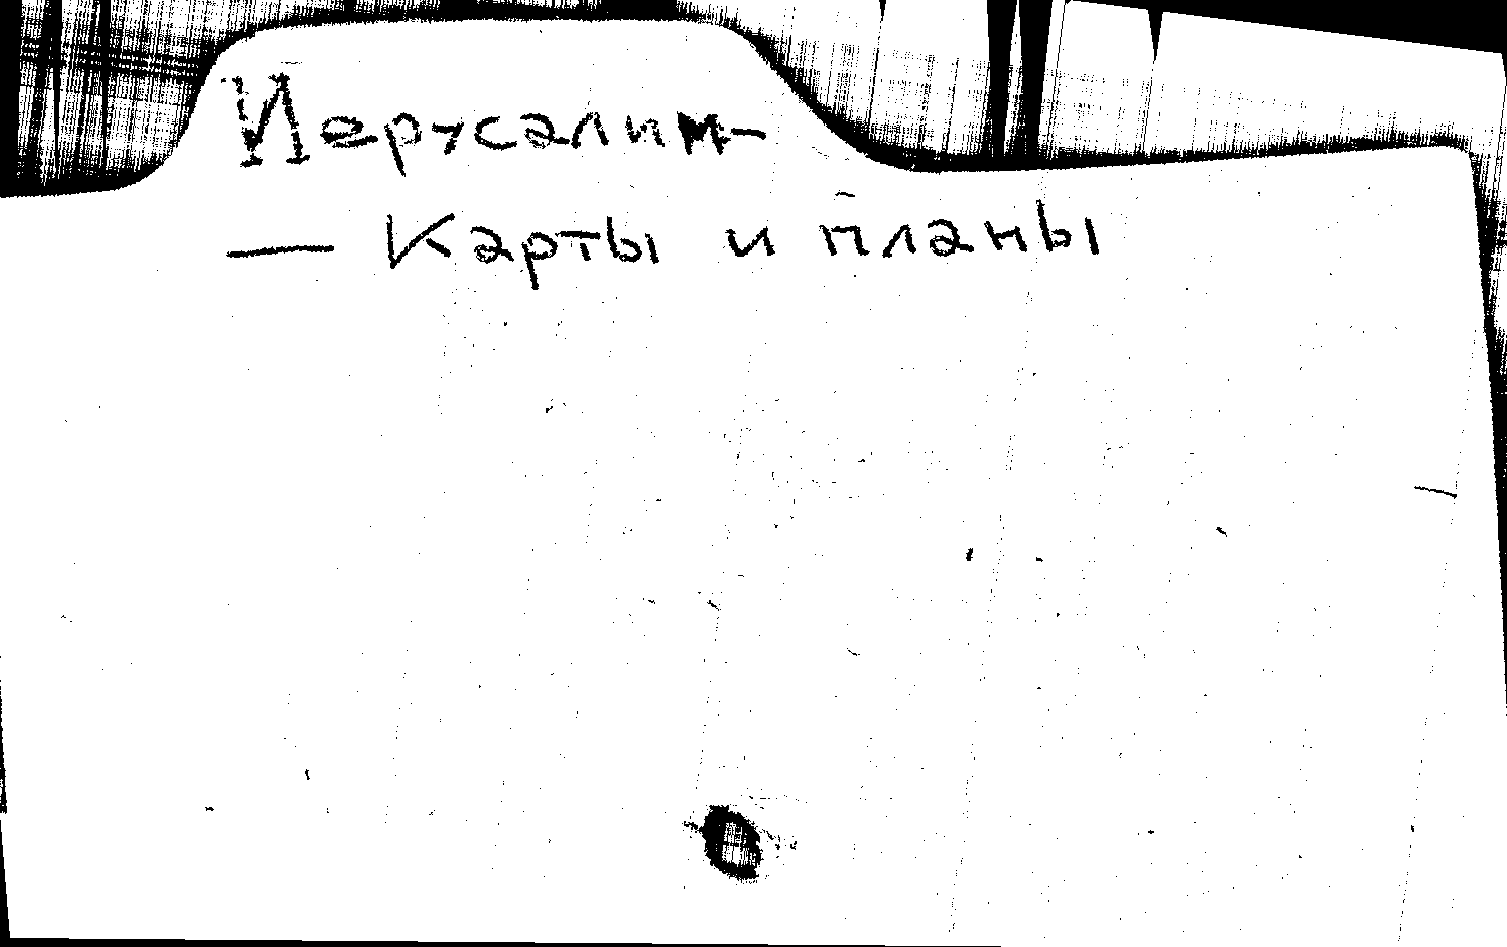 Иерусалим-
— Карты и планы